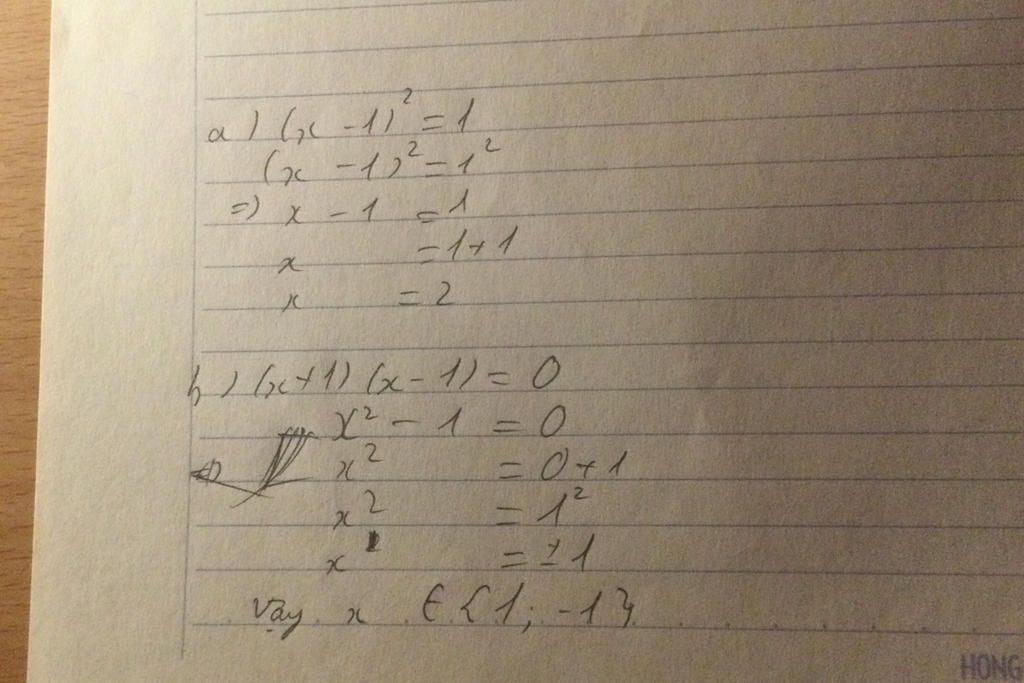 a) (x - 1)² = 1
(x - 1)² = 1²
=) x - 1 = 1
x = 1 + 1
x = 2
b) (x + 1) (x - 1) = 0
x² - 1 = 0
x² = 0 + 1
x² = 1²
x = ± 1
vậy x ∈ {1; -1}
HONG